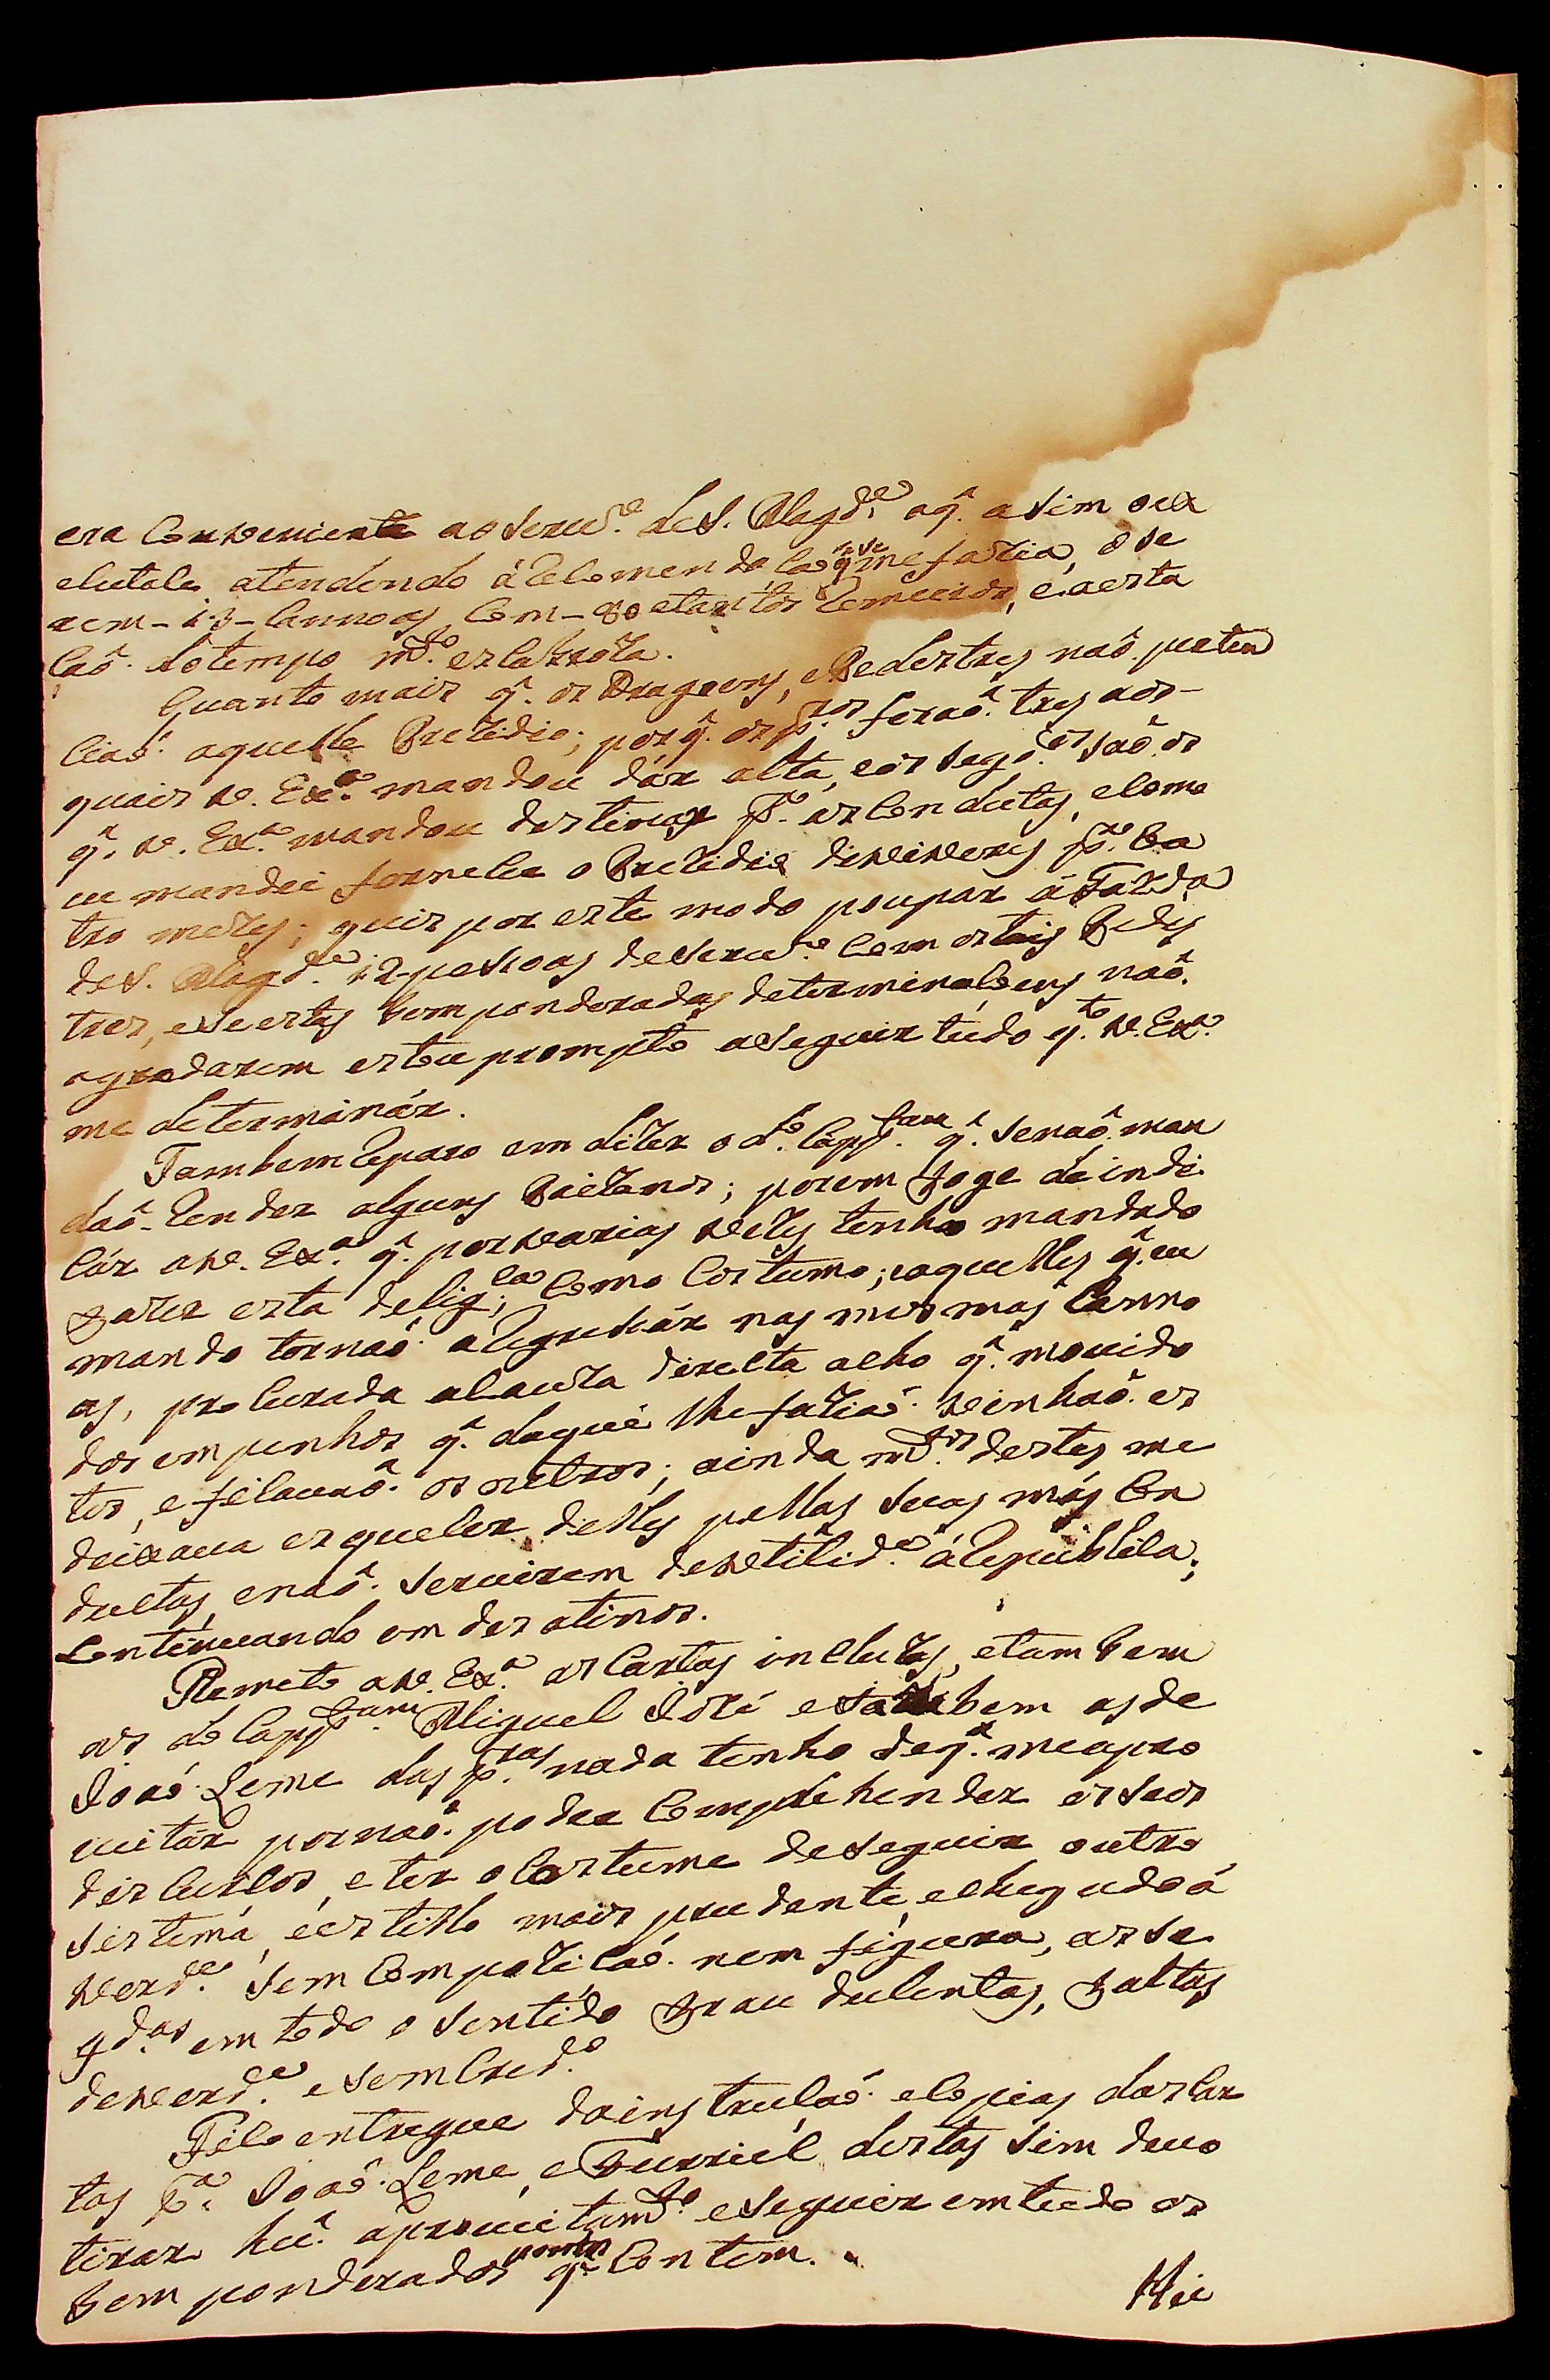 era Conveniente ao Serv.º de S. Magd.e aq̂. asim oex
ecutace. atendendo á Recomendacaõ q̂ se me fazia, e se
rem - 13 - Cannoas, Com - 80 e tantos Remeiros, e aesta
Caõ. do tempo m.to escabroza.
Quanto mais q̂. os Dragoens, e Pedestres naõ. perten
Ciaõ. aquelle Prezidio; por q̂. os pr.os foraõ. tres aos-
quais V. Ex.a mandou dár alta, e os seg.dos saõ. os
q̂. V. Ex.a mandou destinar p.a as Condutas, e como
eu mandei fornecer o Prezidio de viveres p.a Coa
tro mezes; quis por este modo poupar á Fazd.a
de S. Magd.e 12 - pesoas de Serv.e Com os tais Pedes
tres, e se estas bem ponderadas determinacoens naõ.
agradarem estou prompto a Seguir tudo q.to V. Ex.a
me determinár.
Tambem Reparo em dizer o d.o Capp.tam q̂. se naõ. man
daõ. Render alguns Paizanos; porem foge de indi
Cár a V. Ex.a q̂. por varias vezes tenho mandado
fazer esta delig.ca Como Costumo; e aquelles q̂. eu
mando tornaõ. a Regresár nas mesmas Canno
as, procurada a Cauza directa acho q̂. movido
dos empenhos q̂. daqui lhe faziaõ. vinhaõ. es
tes, e ficavaõ. os outros; ainda m.tos destes me
deixava esquecer delles pellas suas más Con
ductas, e naõ. Servirem de utilid.e á Republica;
Continuando em desatinos.
Remeto a V. Ex.a as Cartas incluzas, e tambem
as do Capp.tam Miguel Jozé e tambem as de
Joaõ. Leme das pr.as nada tenho de q̂. me apro
veitar por naõ. poder Comprehender os seos
discursos, e ter o Costume de seguir outro
sistema, e estillo mais prudente, e chegado á
verd.e sem Compoziçaõ. nem figura, as se
g.das em todo o sentido fraudulentas, faltas
de verd.e e sem Cred.o
Fico entregue da instrucaõ. e copias das Car
tas p.a Joaõ. Leme, e Furriél destas sim devo
tirar hu. aproveitam.to e seguir em tudo os
bem ponderados pontos q̂. Contem.
Hie